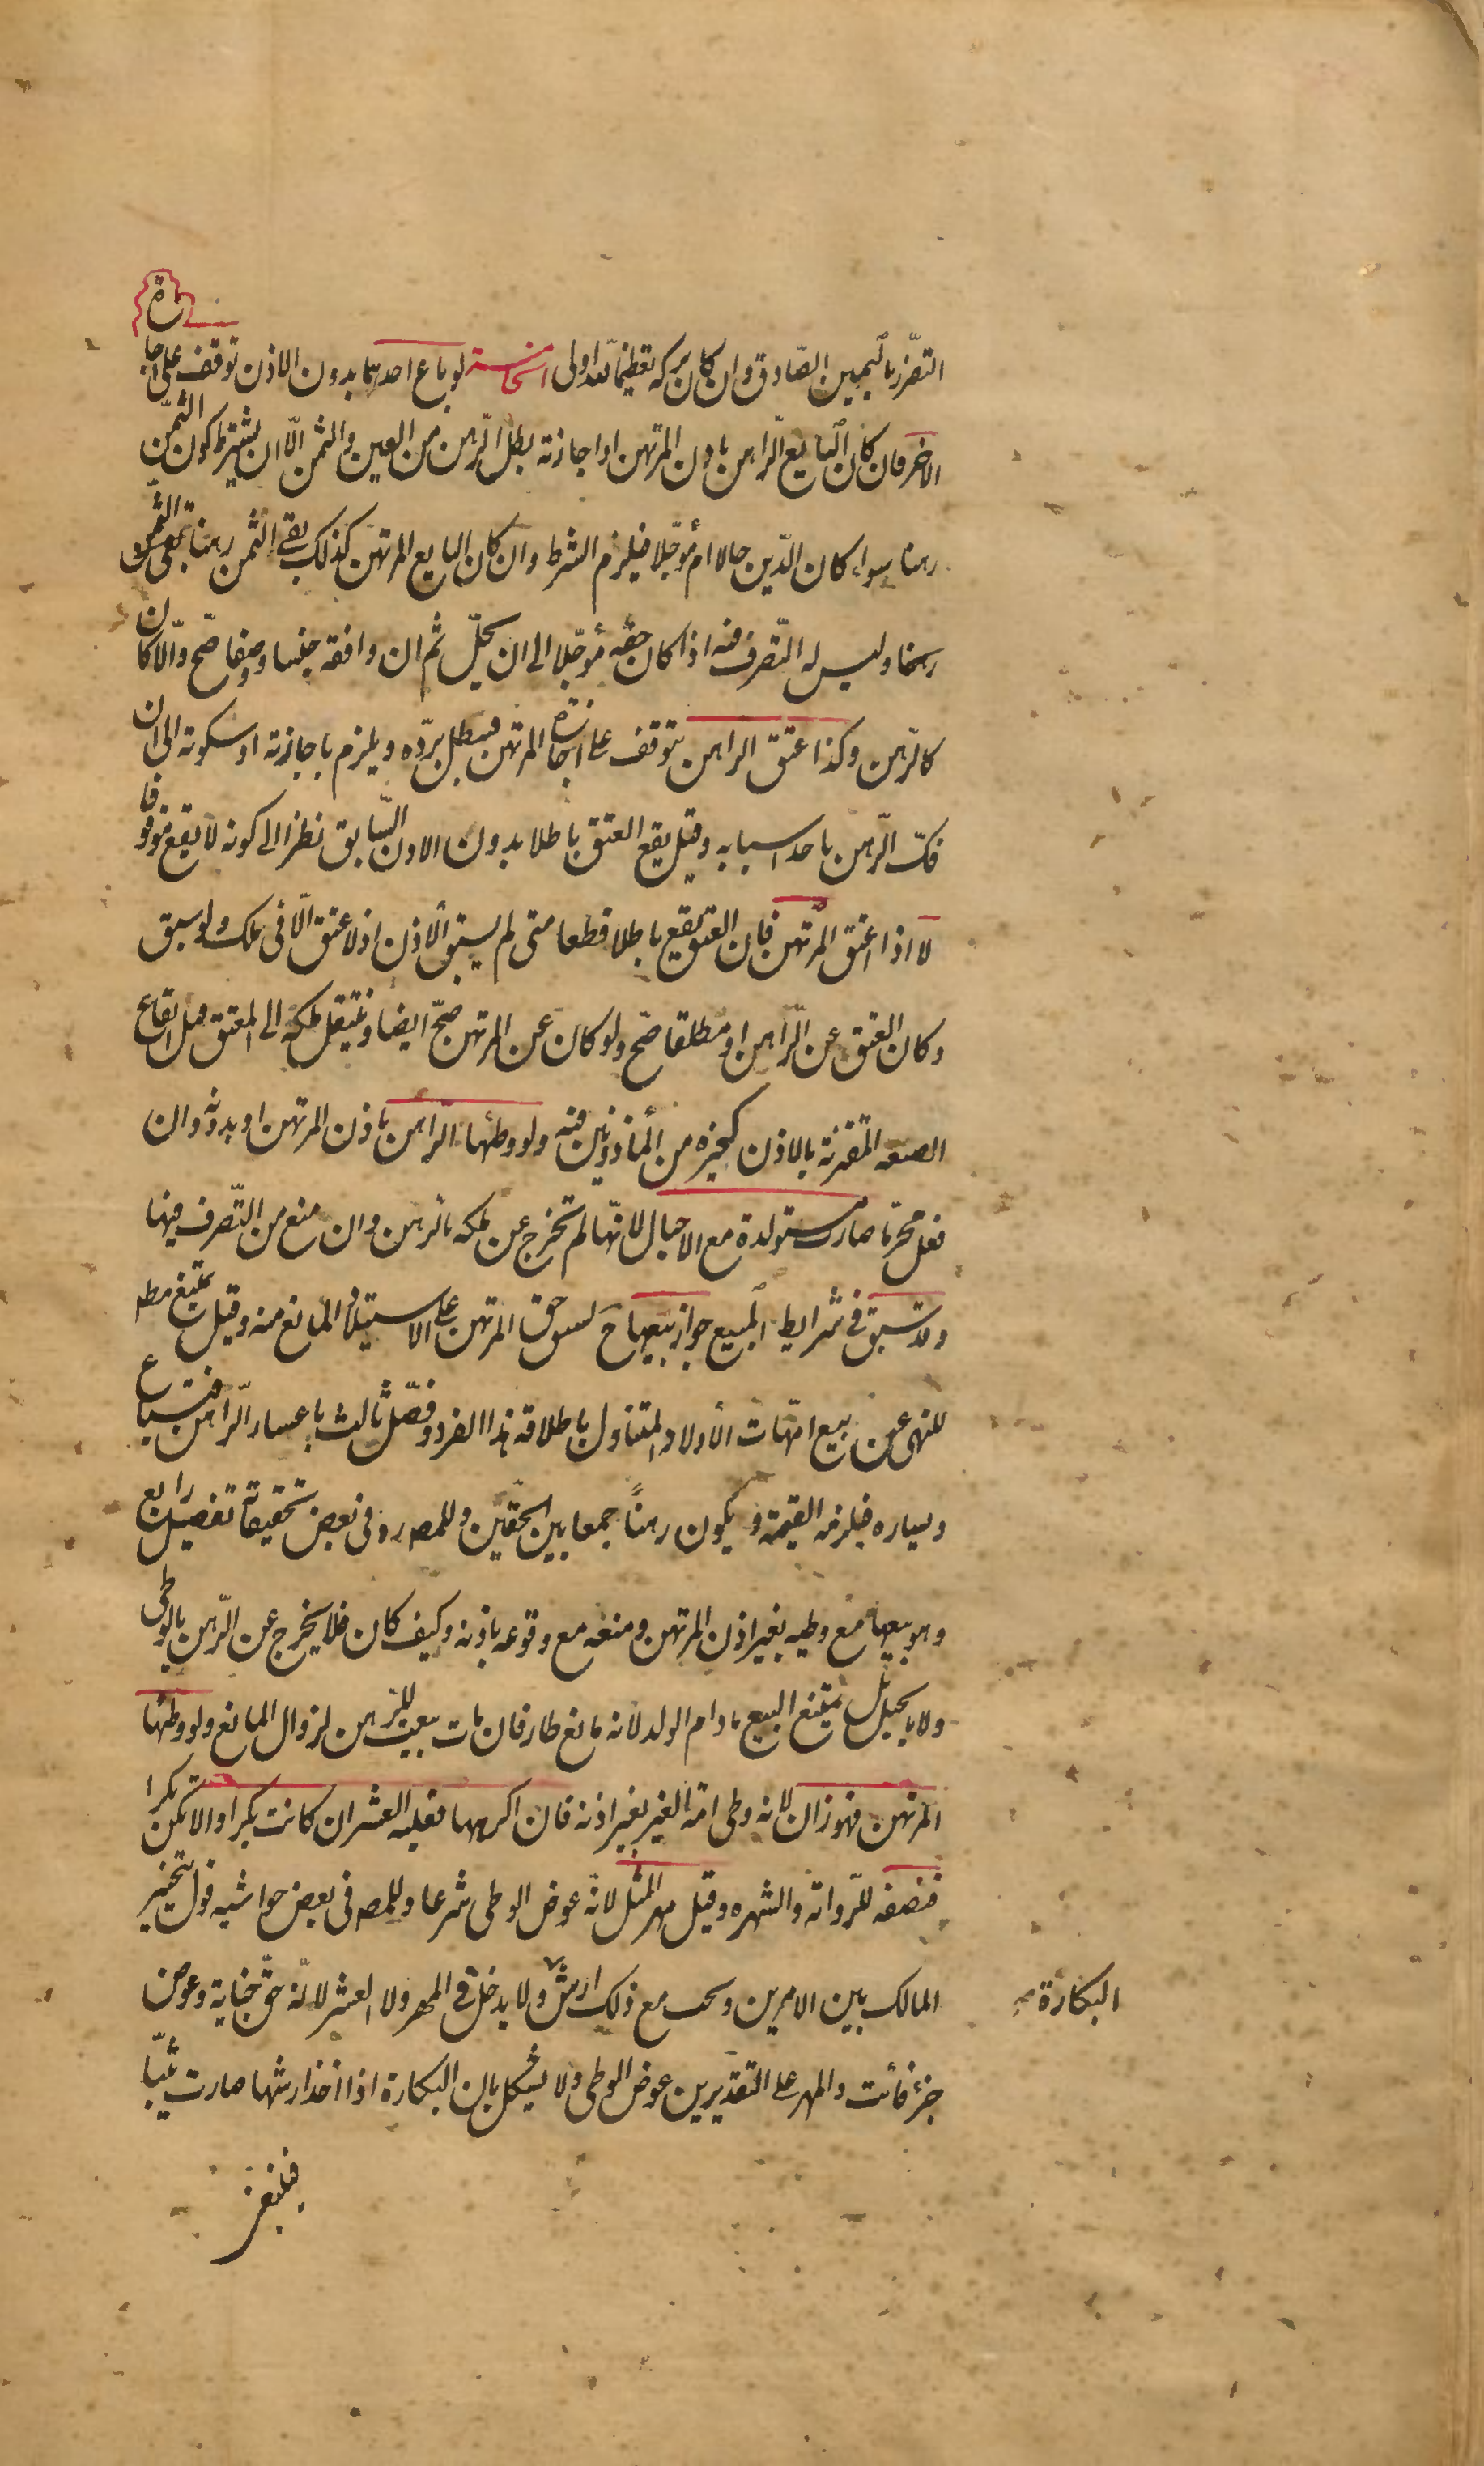 التضرر باليمين الصادق وان كان تركه تعظيما لله اولى الخامسة لو باع احدهما بدون الاذن توقف على اجازة
الاخر فان كان البايع الراهن باذن المرتهن او اجازته بطل الرهن من العين والثمن الا ان يشترط كون الثمن
رهنا سواء كان الدين حالا ام مؤجلا فيلزم الشرط وان كان البايع المرتهن كذلك بقى الثمن رهنا
رهنا وليس له التصرف فيه اذا كان حقه مؤجلا الى ان يحل ثم ان وافقه جنسا ووصفا صح والا كان
كالرهن وكذا عتق الراهن يتوقف على اجازة المرتهن فيبطل برده ويلزم باجازته او سكوته الى ان
فك الرهن باحد اسبابه وقيل يقع العتق باطلا بدون الاذن السابق نظرا الى كونه لا يقع موقوفا
لا اذا اعتق المرتهن فان العتق يقع باطلا قطعا متى لم يسبق الاذن اذ لا عتق الا فى ملك ولو سبق
وكان العتق عن الراهن او مطلقا صح ولو كان عن المرتهن صح ايضا وينتقل ملكه الى المعتق قبل ايقاع
الصيغه المقترنة بالاذن كغيره من المأذونين فيه ولو وطئها الراهن باذن المرتهن او بدونه وان
فعل محرما صارت مستولدة مع الاحبال لانها لم تخرج عن ملكه بالرهن وان منع من التصرف فيها
وقد سبق فى شرايط المبيع جواز بيعها ح لسبق حق المرتهن على الاستيلاد المانع منه وقيل يمتنع مطه
للنهى عن بيع امهات الأولاد المتناول باطلاقه هذا الفرد وفصل ثالث باعسار الراهن فتباع
ويساره فيلزمه القيمة ويكون رهنًا جمعا بين الحقين وللمصه ره فى بعض تحقيقاته تفصيل رابع
وهو بيعها مع وطيه بغير اذن المرتهن ومنعه مع وقوعه باذنه وكيف كان فلا يخرج عن الرهن بالوطى
ولا بالحبل بل يمتنع البيع مادام الولد لانه مانع طار فان مات بيعت للرهن لزوال المانع ولو وطئها
المرتهن فهو زان لانه وطى امة الغير بغير اذنه فان اكرهها فعليه العشر ان كانت بكرا والا تكن بكرا
فنصفه للرواية والشهره وقيل مهر المثل لانه عوض الوطى شرعا وللمصه فى بعض حواشيه قول بتخيير
المالك بين الامرين ويجب مع ذلك ارش ولا يدخل فى المهر ولا العشر لانه حق جناية وعوض
البكارة صح
جزء فائت والمهر على التقديرين عوض الوطى ولا يشكل بان البكارة اذا اخذ ارشها صارت ثيبا
فينبغى